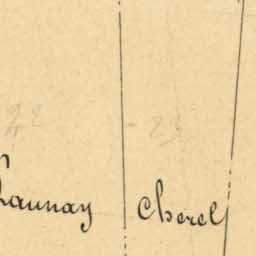 22 23
Launay Cherel